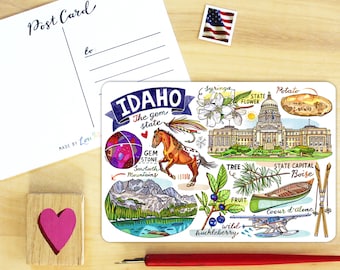 Post Card
to
MADE BY
IDAHO
The gem
state
Syringa
STATE
FLOWER
Potato
GEM
STONE
Sawtooth
Mountains
TREE
STATE CAPITAL
Boise
FRUIT
wild
huckleberry
Coeur d'alene